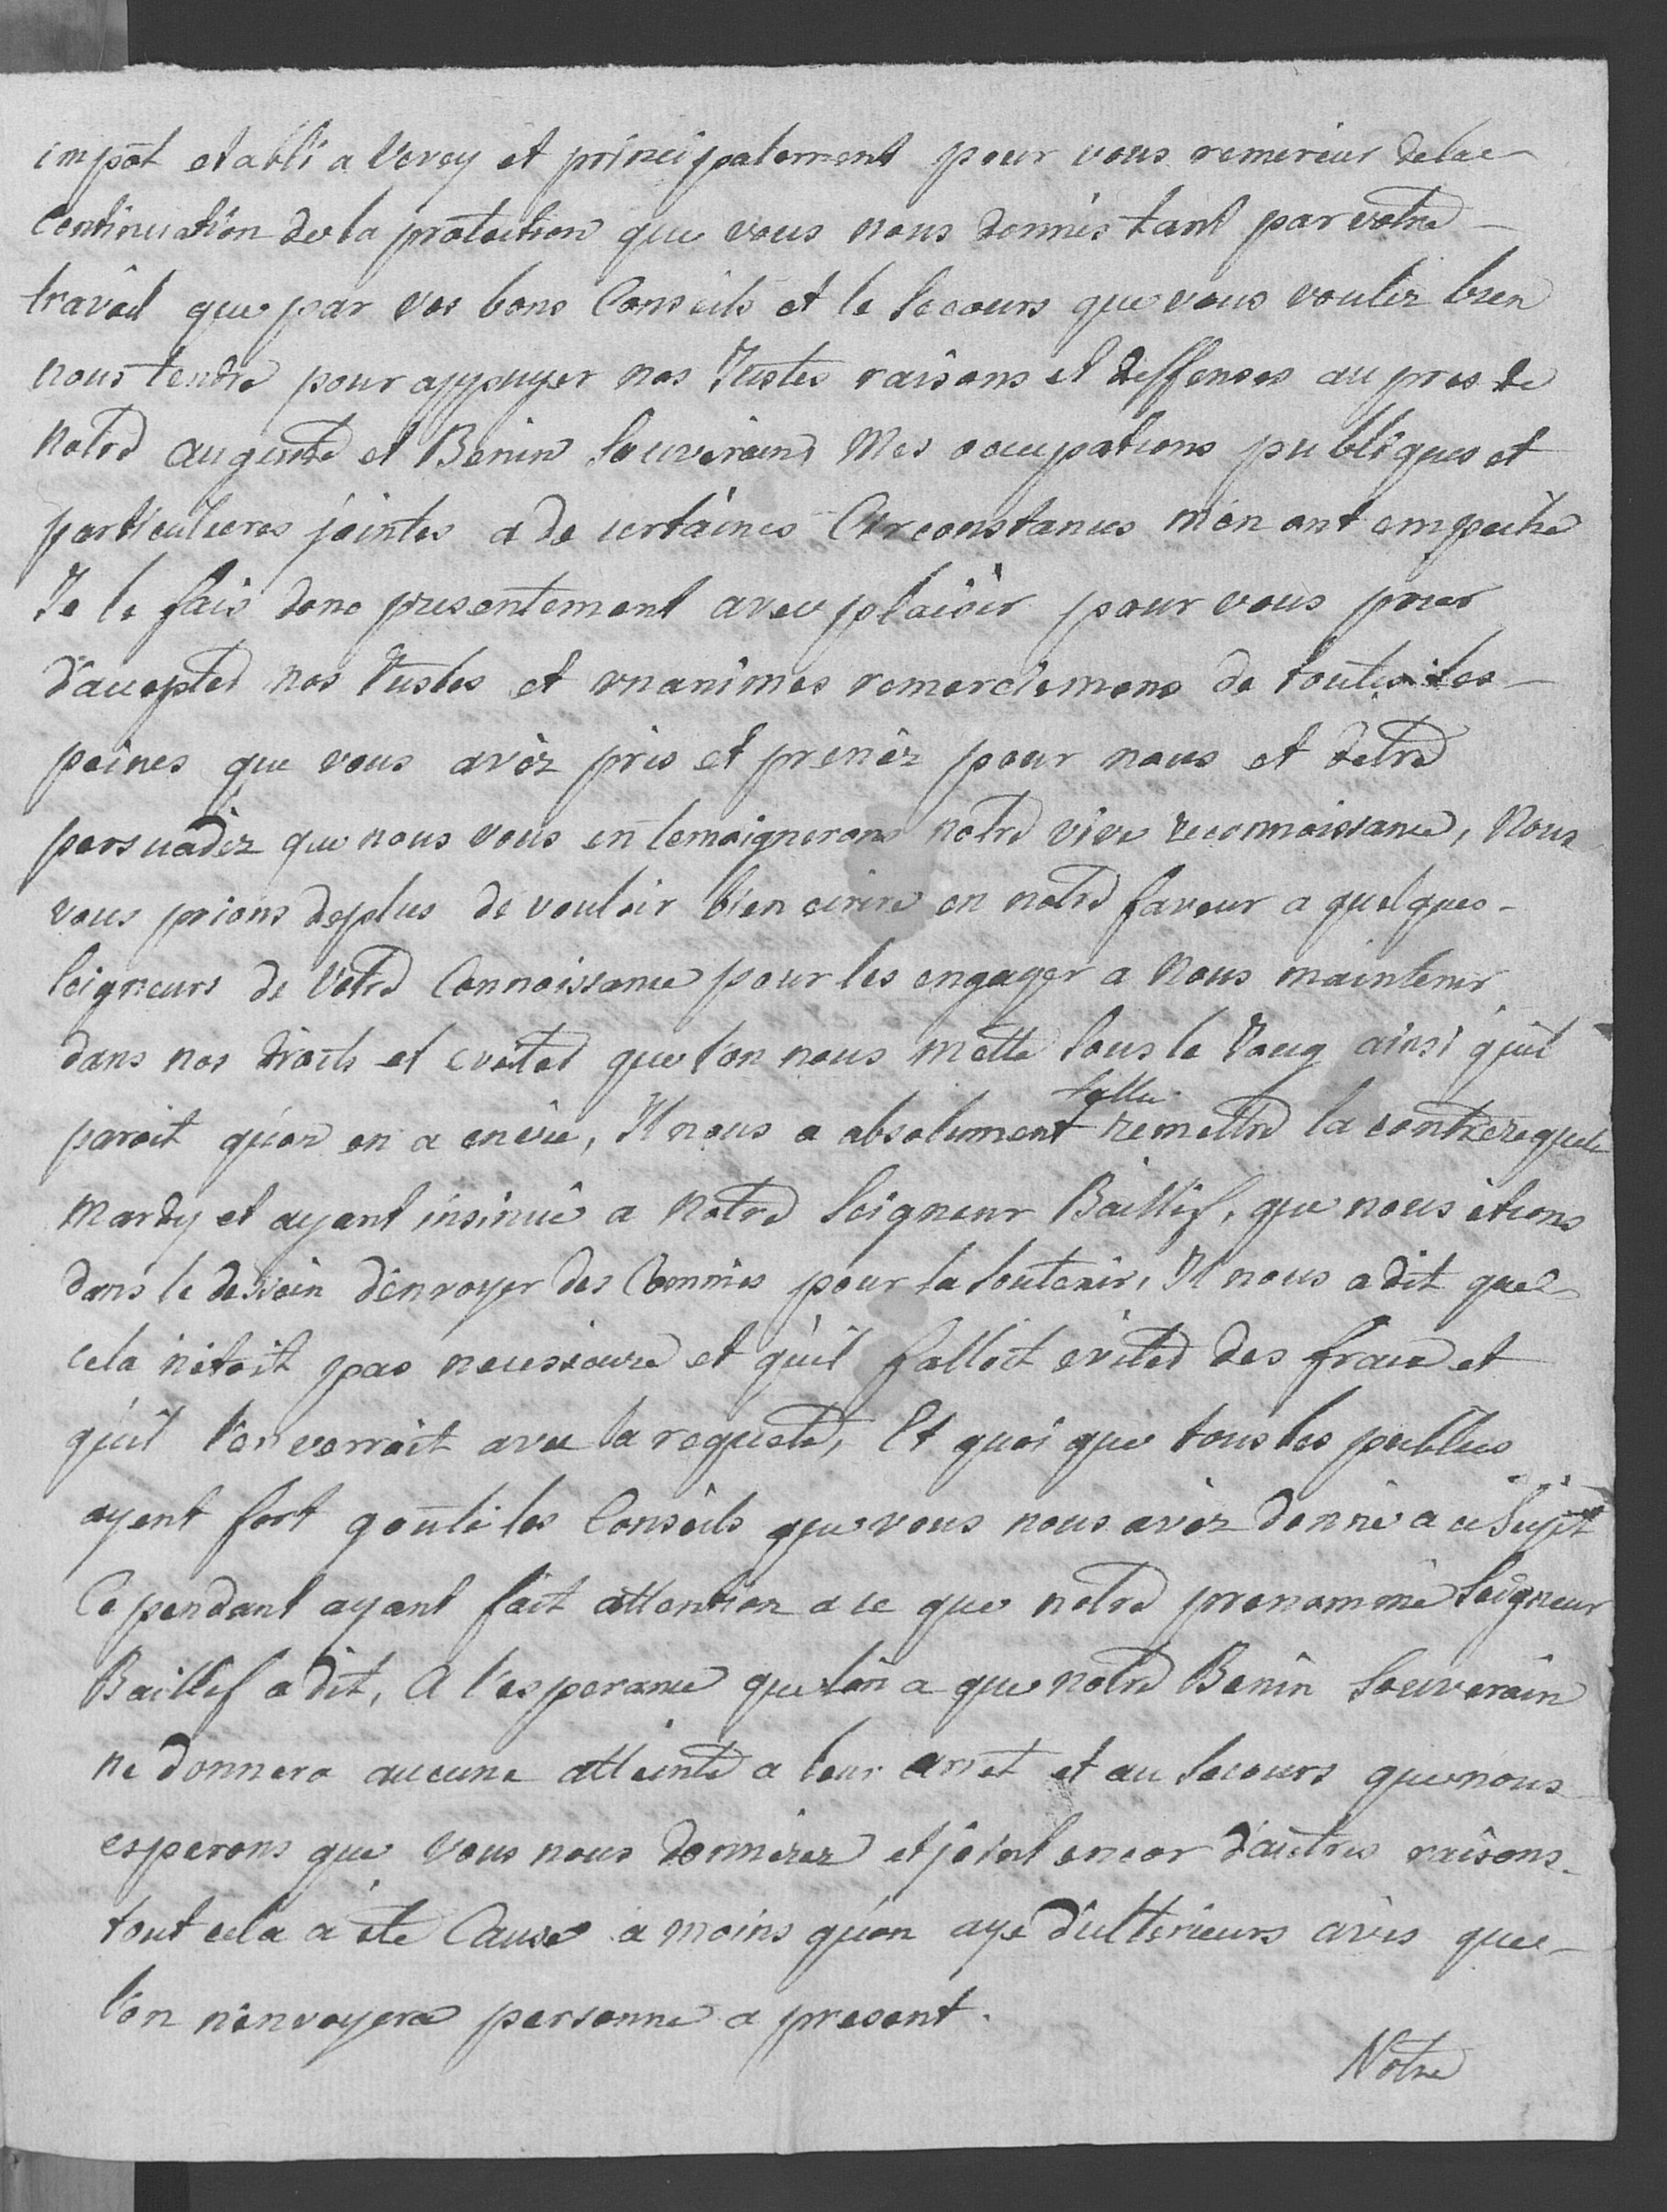 impot etabli a Vevey et principalement pour vous remercier de la
Continuation de la protection que vous nous donnés tant par votre
travail que par vos bons Conseils et le secours que vous voulez bien
nous tendre pour appuyer nos Justes raisons et deffenses au pres de
notre auguste et Benin Souverain, Mes occupations publiques et
particulieres jointes a de certaines Circonstances m'en ont empeché
Je le fais donc presentement avec plaisir pour vous prier
d'accepter nos Justes et unanimes remerciemens de toutes les
peines que vous avéz pris et prenéz pour nous et detre
persuadéz que nous vous en temoignerons notre vive reconnoissance, Nous
vous prions deplus de vouloir bien ecrire en notre faveur a quelques
Seigneurs de Votre Connoissance pour les engager a Nous maintenir
dans nos droits et eviter que l'on nous mette sous le Joug ainsi qu'il
paroit qu'on en a envie, Il nous a absolument fallu remettre la contrerequete
mardy et ayant insinué a Notre Seigneur Baillif, que nous étions
dans le dessein d'envoyer des Commis pour la soutenir, Il nous a dit que
cela n'étoit pas necessaire et qu'il falloit éviter des fraix et
qu'il l'enverroit avec la requete, Et quoi que tous les publics
ayent fort gouté les Conseils que vous nous avéz donné a ce Sujet
Cependant ayant fait attention a ce que notre prenommé Seigneur
Baillif a dit, A l'esperance que l'on a que notre Benin Souverain
ne donnera aucune atteinte a leur arret et au secours que nous
esperons que Vous nous donnerez et joint encor d'autres raisons
tout cela a été Cause a moins qu'on aye d'ulterieurs avis que
l'on n'envoyera personne a present.
Notre